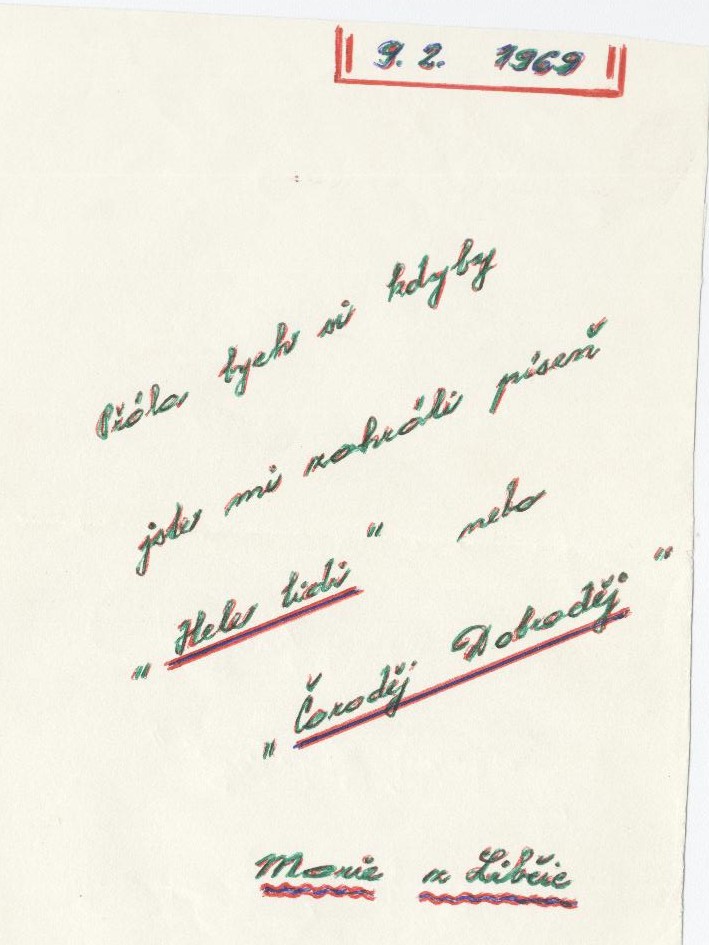 9. 2. 1969
Přála bych si kdyby
jste mi zahráli píseň
„Hele lidi" nebo
„Čaroděj Dobroděj"
Marie z Libčic